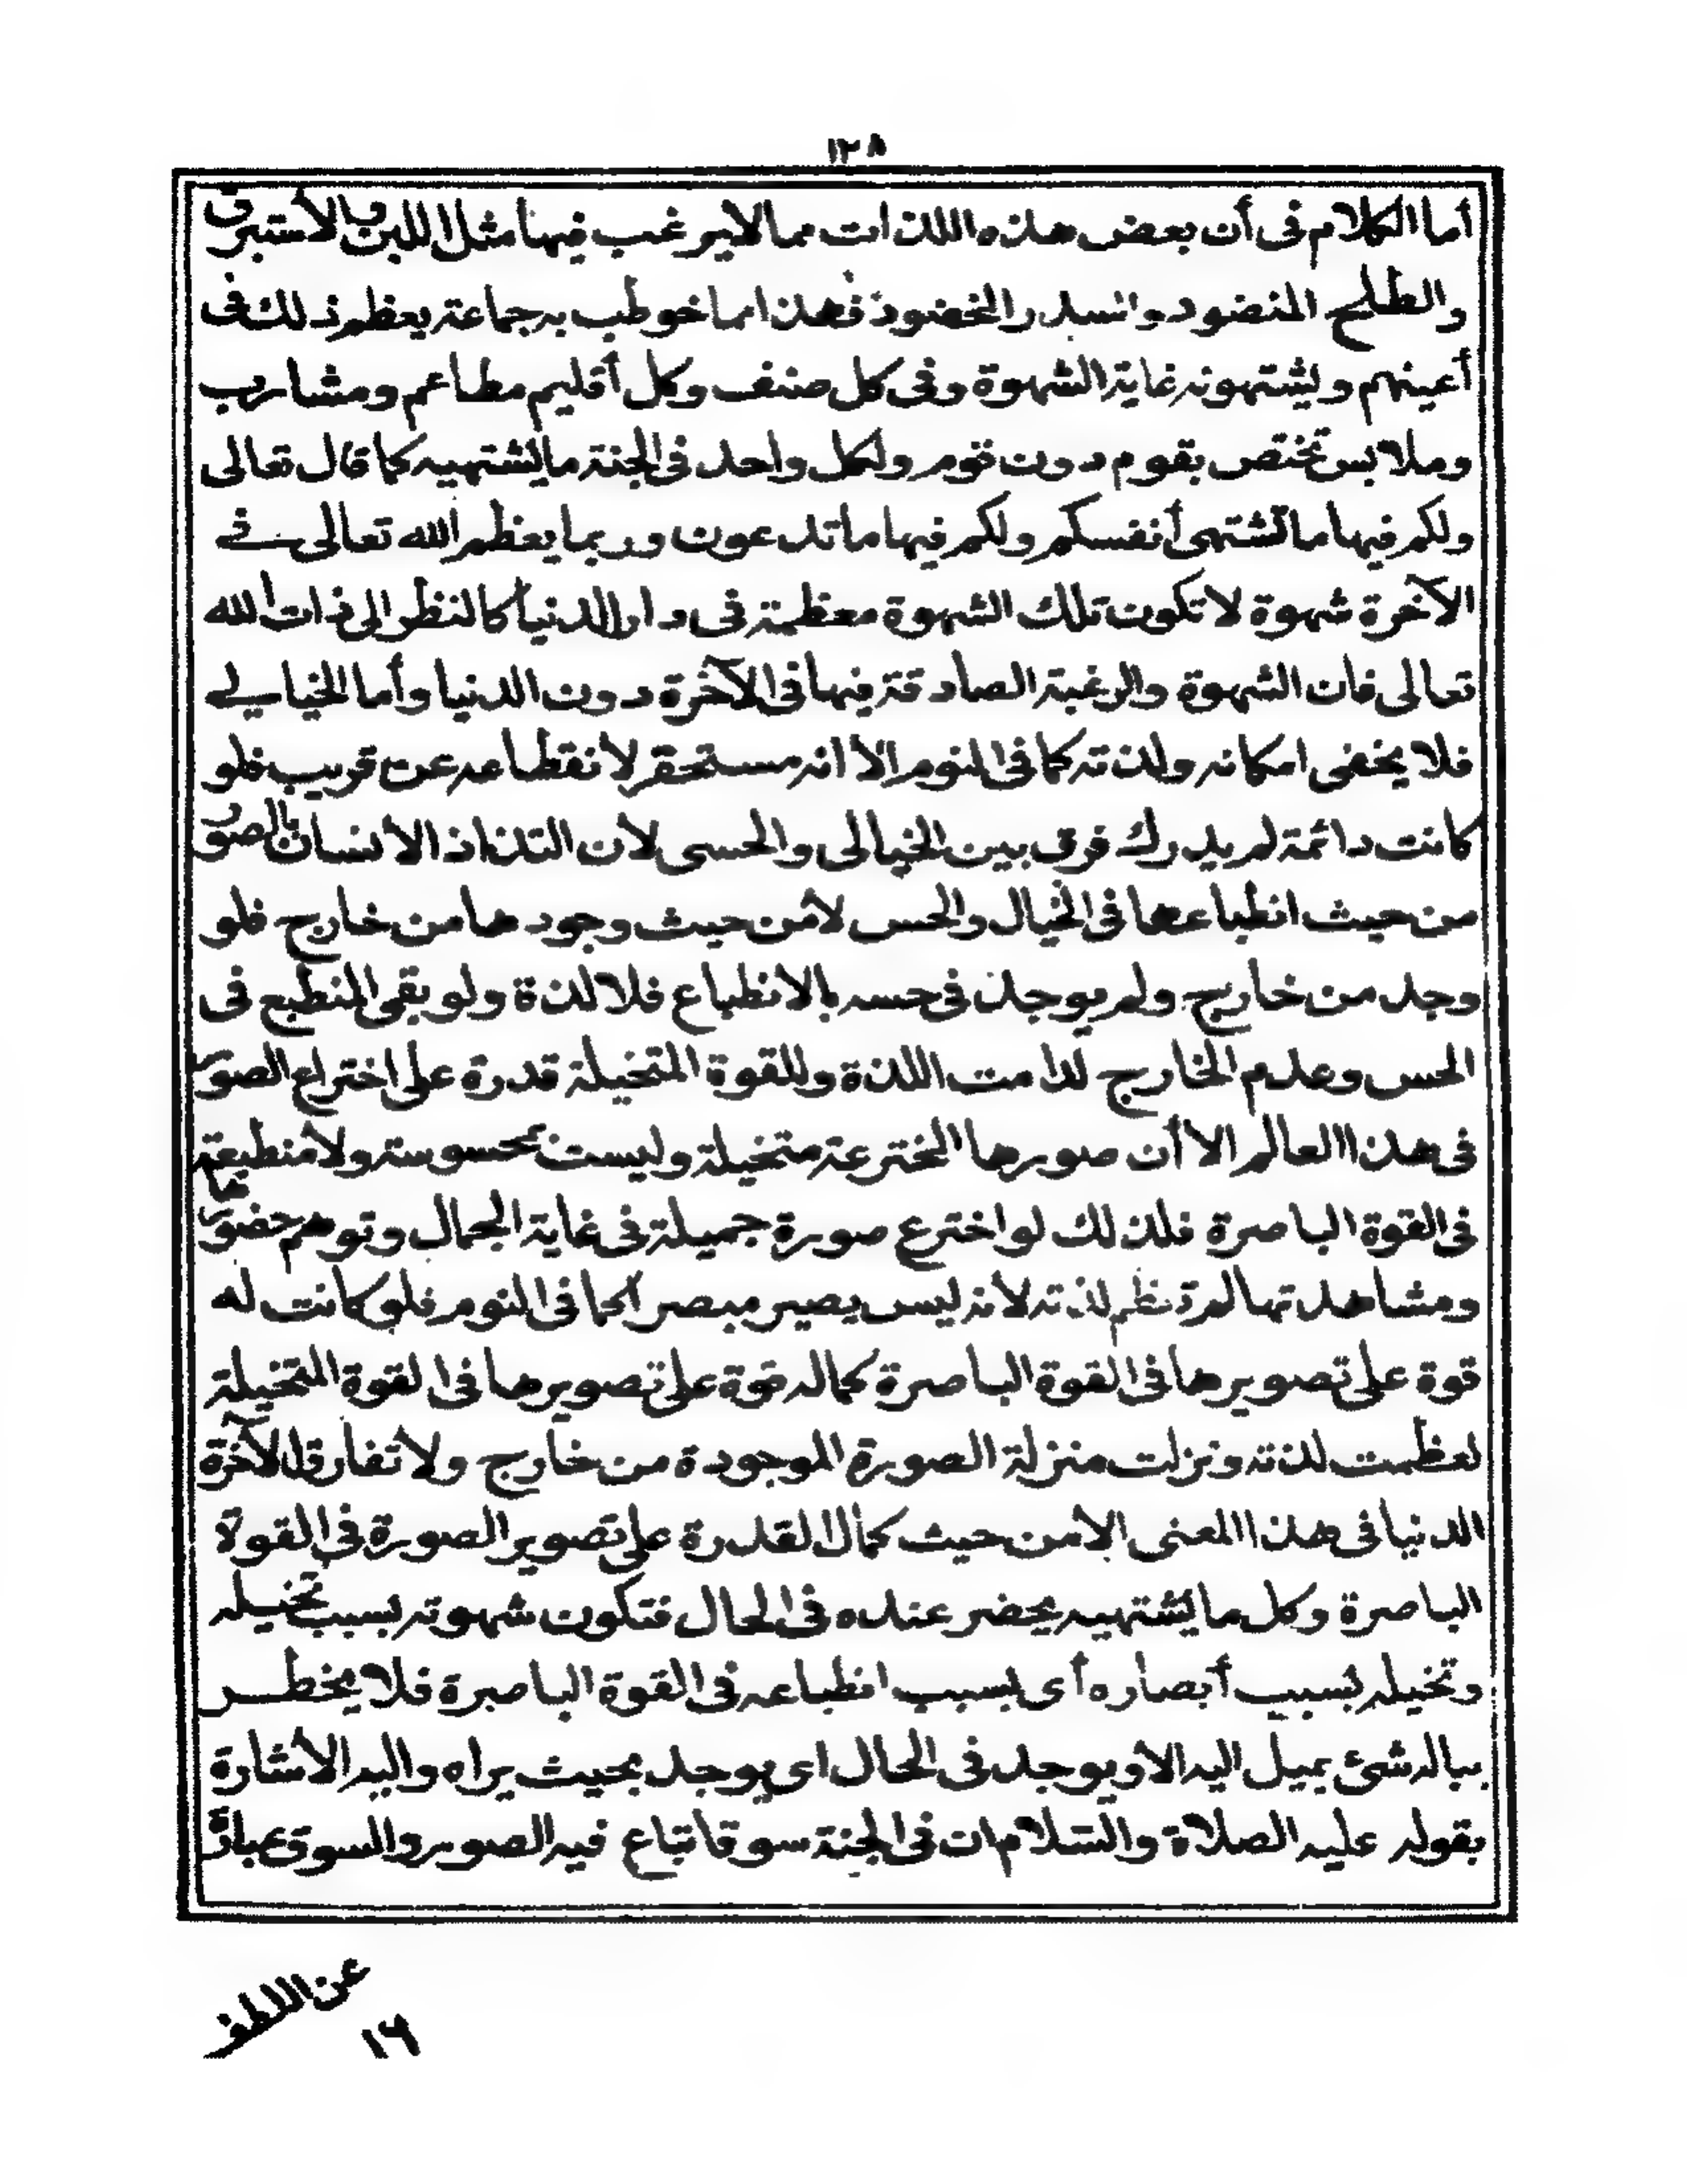 ١٢٨
أما الكلام فى أن بعض هذه اللذات مما لا يرغب فيها مثل اللبن والأستبرق
والطلح المنضود والسدر المخضود فهذا مما خوطب به جماعة يعظم ذلك فى
أعينهم ويشتهونه غاية الشهوة وفى كل صنف وكل أقليم مطاعم ومشارب
وملابس تختص بقوم دون قوم ولكل واحد فى الجنة ما يشتهيه كما قال تعالى
ولكم فيها ما تشتهى أنفسكم ولكم فيها ما تدعون وربما يعظم الله تعالى فى
الآخرة شهوة لا تكون تلك الشهوة معظمة فى دار الدنيا كالنظر الى ذات الله
تعالى فان الشهوة والرغبة الصادقة فيها فى الآخرة دون الدنيا وأما الخيالى
فلا يخفى امكانه ولذته كما فى النوم الا انه مستحقر لأنقطاعه عن قريب فلو
كانت دائمة لم يدرك فرق بين الخيالى والحسى لأن التذاذ الأنسان بالصور
من حيث انطباعها فى الخيال والحس لا من حيث وجودها من خارج فلو
وجد من خارج ولم يوجد فى حسه بالانطباع فلا لذة ولو بقى المنطبع فى
الحس وعدم الخارج لدامت اللذة وللقوة المتخيلة قدرة على اختراع الصور
فى هذا العالم الا أن صورها المخترعة متخيلة وليست بمحسوسة ولا منطبعة
فى القوة الباصرة فلذلك لو اخترع صورة جميلة فى غاية الجمال وتوهم حضورها
ومشاهدتها لم تعظم لذته لأنه ليس يصير مبصرا كما فى النوم فلو كانت له
قوة على تصويرها فى القوة الباصرة كما له قوة على تصويرها فى القوة المتخيلة
لعظمت لذته ونزلت منزلة الصورة الموجودة من خارج ولا تفارق الآخرة
الدنيا فى هذا المعنى الا من حيث كمال القدرة على تصوير الصورة فى القوة
الباصرة وكل ما يشتهيه يحضر عنده فى الحال فتكون شهوته بسبب تخيله
وتخيله بسبب أبصاره أى بسبب انطباعه فى القوة الباصرة فلا يخطر
بباله شئ يميل اليه الا ويوجد فى الحال اى يوجد بحيث يراه واليه الأشارة
بقوله عليه الصلاة والسلام ان فى الجنة سوقا تباع فيه الصور والسوق عبارة
عن اللطف
١٦